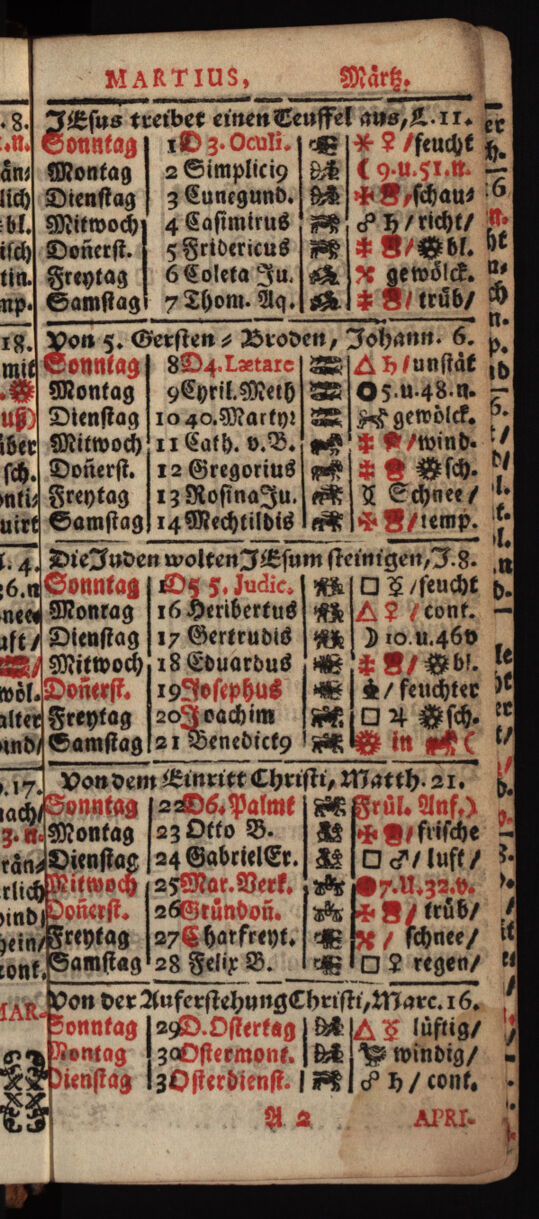 MARTIUS, Märtz.
JEsus treibet einen Teuffel aus, L. 11.
Sonntag 1 D 3. Oculi. ⚹ ♀ / feucht
Montag 2 Simplici9 ☾ 9. u. 51. n.
Dienstag 3 Cunegund. schau=
Mitwoch 4 Casimirus ☍ ♄ / richt /
Doñerst. 5 Fridericus bl.
Freytag 6 Coleta Ju. gewölck.
Samstag 7 Thom. Aq. trüb /
Von 5. Gersten = Broden, Johann. 6.
Sonntag 8 D 4. Lætare △ ♄ / unstät
Montag 9 Cyril. Meth 5. u. 48. n.
Dienstag 10 40. Martyr gewölck.
Mitwoch 11 Cath. v. B. / wind.
Doñerst. 12 Gregorius sch.
Freytag 13 Rosina Ju. ☿ Schnee /
Samstag 14 Mechtildis / temp.
Die Juden wolten JEsum steinigen, J. 8.
Sonntag 1D5 5. Judic. □ ☿ / feucht
Montag 16 Heribertus △ ♀ / cont.
Dienstag 17 Gertrudis ☽ 10. u. 46 v
Mitwoch 18 Eduardus / bl.
Doñerst. 19 Josephus / feuchter
Freytag 20 Joachim □ ♃ sch.
Samstag 21 Benedict9 in
Von dem Einritt Christi, Matth. 21.
Sonntag 22 D6. Palmt Frül. Anf.
Montag 23 Otto B. / frische
Dienstag 24 Gabriel Er. □ ♂ / luft /
Mitwoch 25 Mar. Verk. 7. U. 32. v.
Doñerst. 26 Gründoñ. / trüb /
Freytag 27 Charfreyt. / schnee /
Samstag 28 Felix B. □ ♀ regen /
Von der Auferstehung Christi, Marc. 16.
Sonntag 29 D. Ostertag △ ☿ lüftig /
Montag 30 Ostermont. windig /
Dienstag 3 Osterdienst. ☍ ♄ / cont.
A 2 APRI-